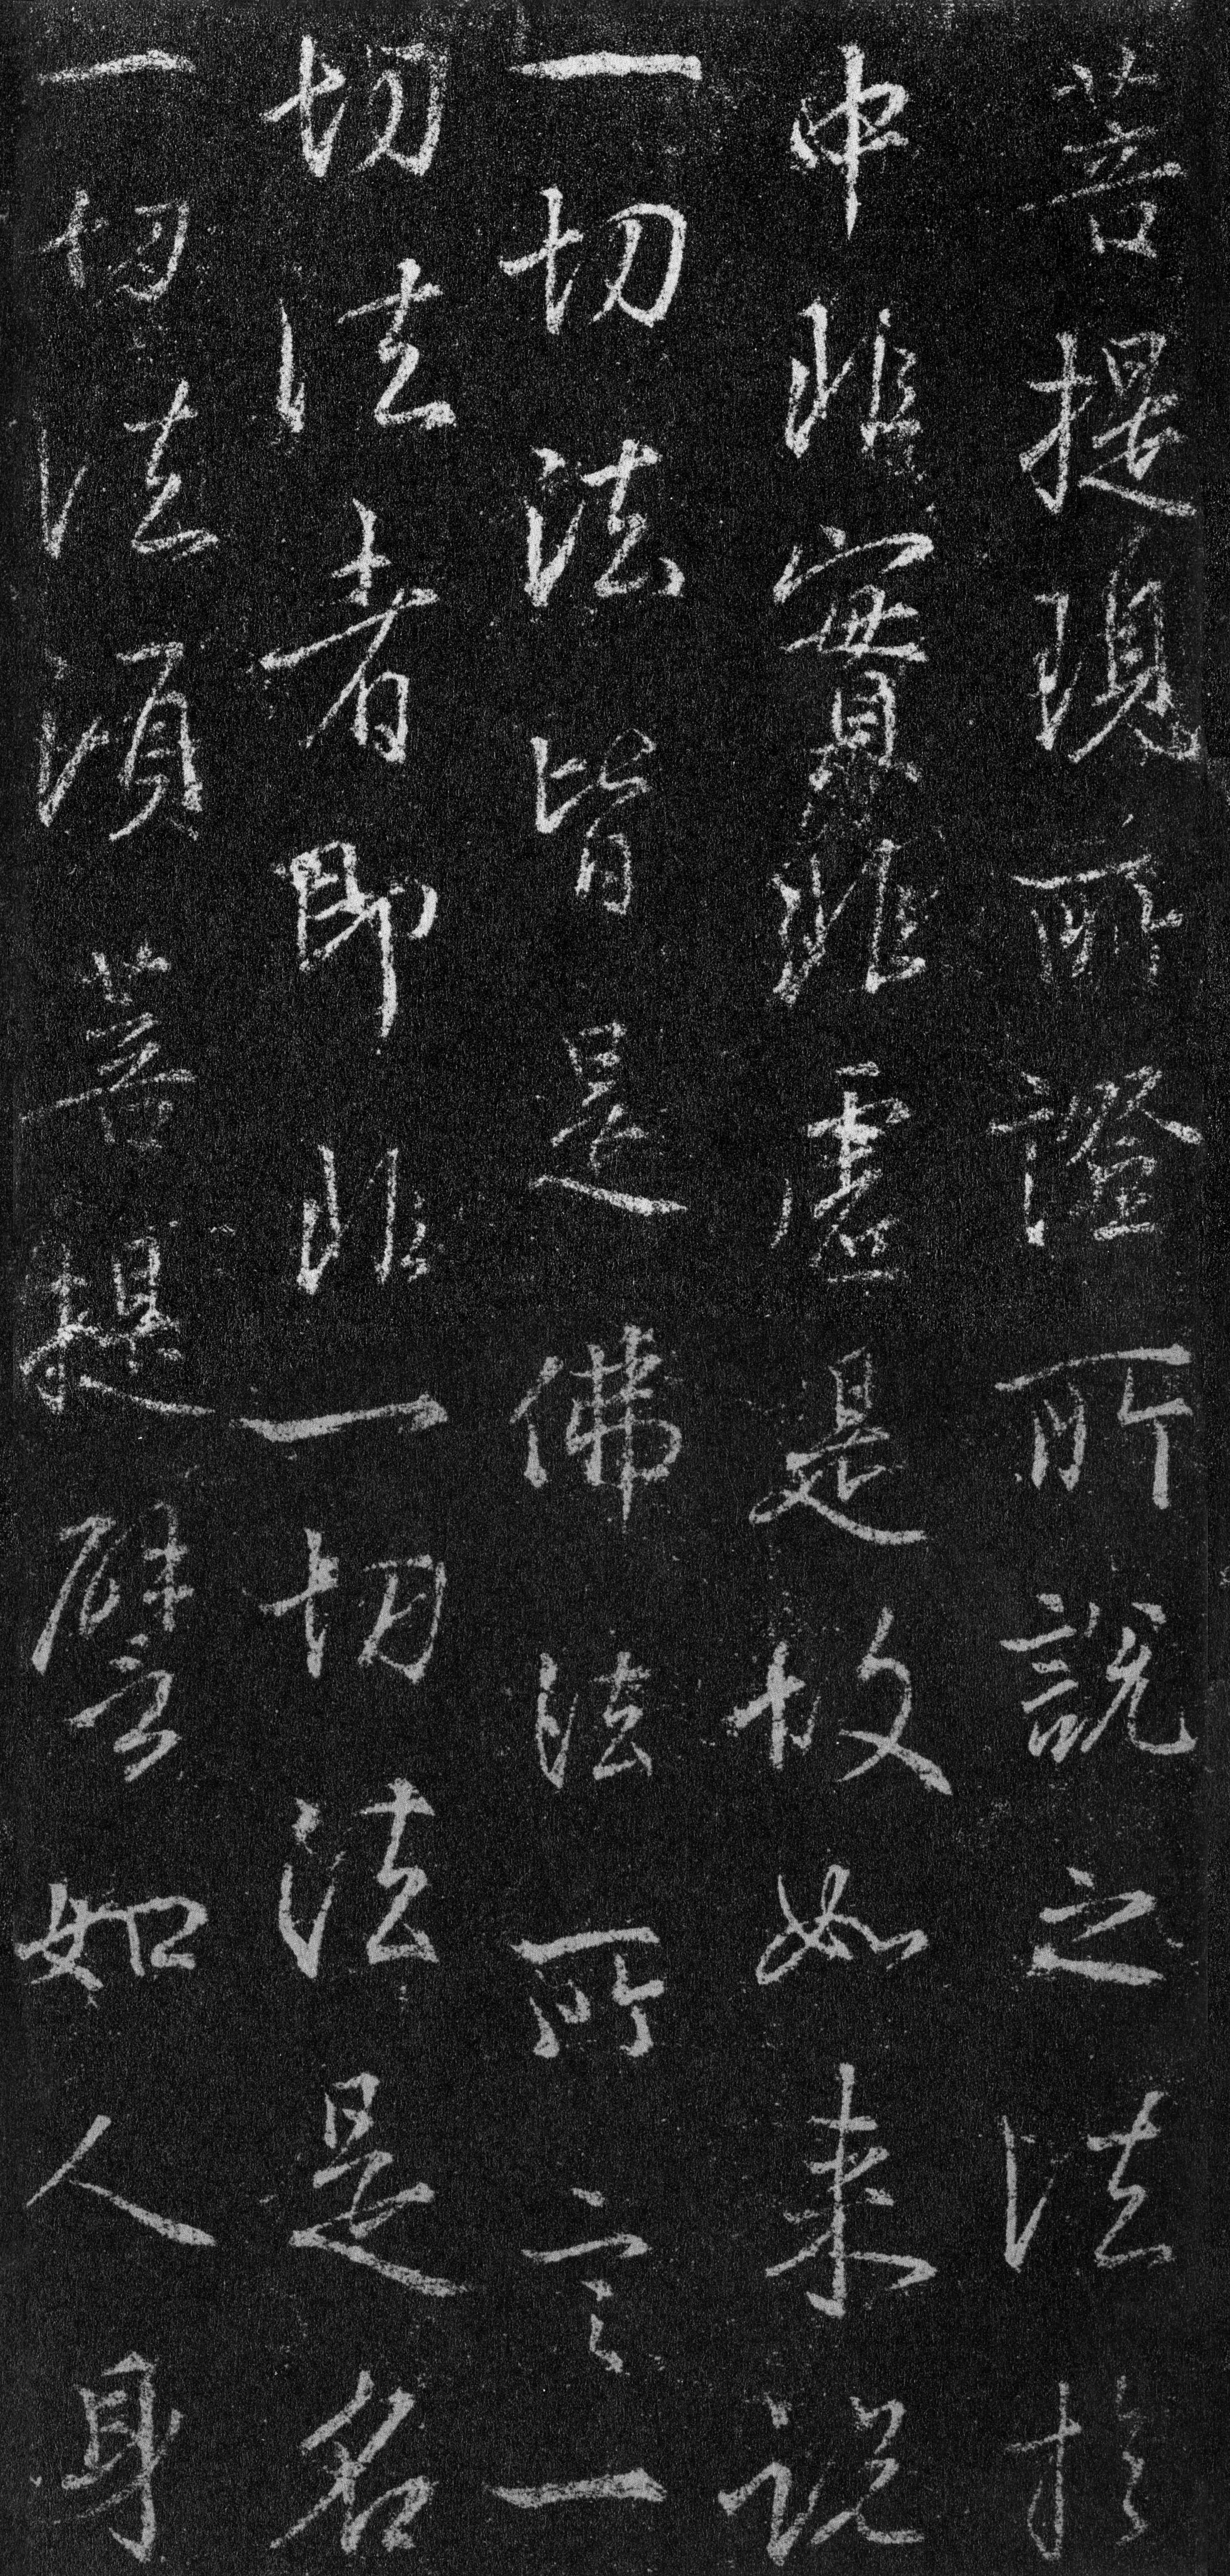 菩提現所證所說之法於
中非實非虛是故如來說
一切法皆是佛法所言一
切法者即非一切法是名
一切法須菩提譬如人身